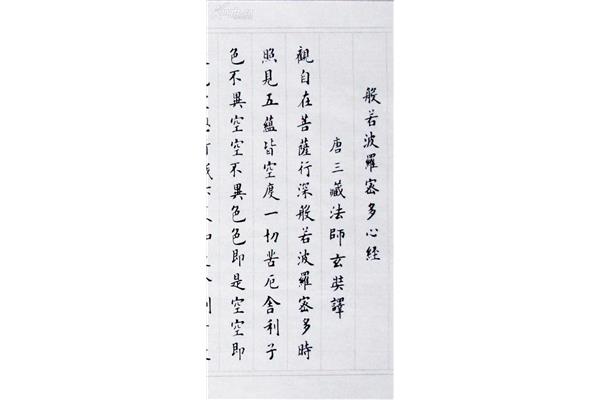 般若波羅密多心経
唐三藏法師玄奘譯
觀自在菩薩行深般若波羅密多時
照見五蘊皆空度一切苦厄舍利子
色不異空空不異色色即是空空即